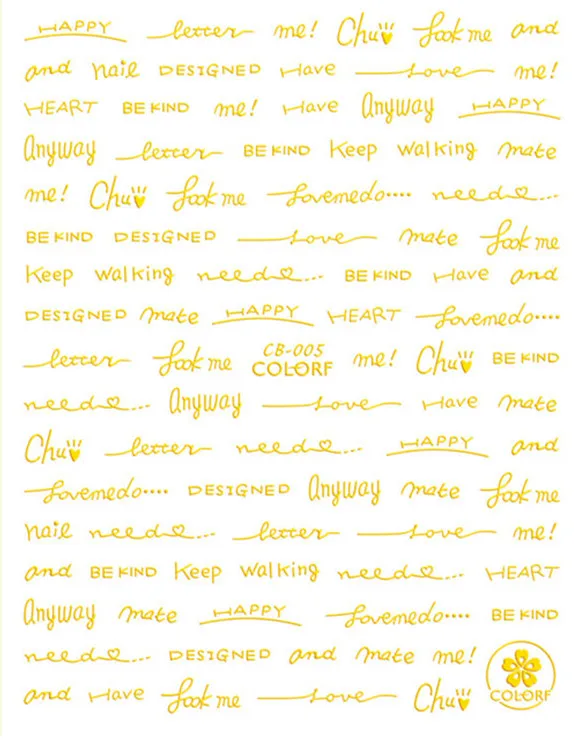 HAPPY letter me! Chu look me and
and nail DESIGNED Have Love me!
HEART BE KIND me! Have Anyway HAPPY
Anyway letter BE KIND Keep walking mate
me! Chu look me Lovemedo.... need...
BE KIND DESIGNED Love mate look me
Keep walking need... BE KIND Have and
DESIGNED mate HAPPY HEART Lovemedo....
letter look me CB-005 COLORF me! Chu BE KIND
need... Anyway Love Have mate
Chu letter need... HAPPY and
Lovemedo.... DESIGNED Anyway mate look me
nail need... letter Love me!
and BE KIND Keep walking need... HEART
Anyway mate HAPPY Lovemedo.... BE KIND
need... DESIGNED and mate me!
and Have look me Love Chu COLORF